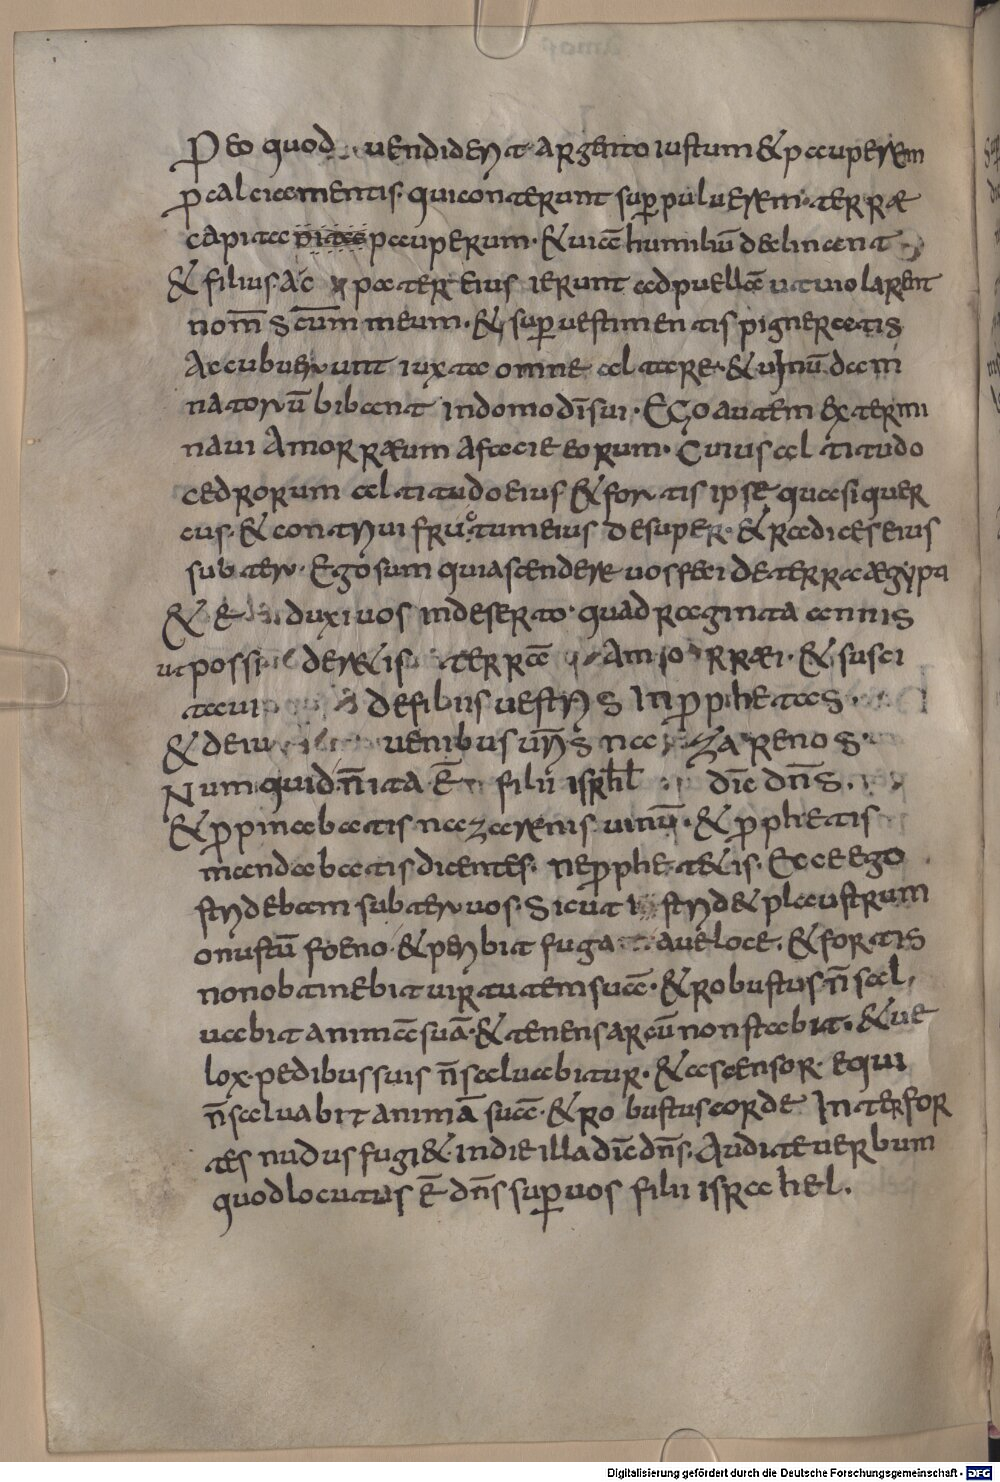 P eo quod uendiderit argento iustum & pauperem
p̱ calciamentis. qui conterunt sup̱ puluerem terræ
capita pauperum. & uiā humiliū declinant
& filius ac pater eius ierunt ad puellā ut uiolarent
nom̄ sc̄um meum. & sup̱ uestimentis pigneratis
Accubuerunt iuxta omne altare. & uinū dam
natorū bibeant in domo dī sui. Ego autem extermi
naui Amorræum a facie eorum. Cuius altitudo
cedrorum altitudo eius & fortis ipse quasi quer
cus. & contriui fructum eius desuper. & radices eius
subter. Ego sum qui ascendere uos feci de terra ægypti
& duxi uos in deserto. quadraginta annis
ut possideretis terrā Amorræi. & susci
taui de filiis uestris in p̱phetas.
& de iuuenibus ur̄is nazarenos.
Numquid n̄ ita ē filii isrhl dic̄ dn̄s.
& p̱pinabatis nazarenis uinū. & p̱phetis
mandabatis dicentes. ne p̱phetetis. Ecce ego
stridebam subter uos. Sicut stridet plaustrum
onustū foeno. & peribit fuga a ueloce. & fortis
non obtinebit uirtutem suā. & robustus n̄ sal
uabit animā suā. & tenens arcū non stabit. & ue
lox pedibus suis n̄ saluabitur. & ascensor equi
n̄ saluabit animā suā. & robustus corde Inter for
tes nudus fugiet. in die illa dic̄ dn̄s. Audite uerbum
quod locutus ē dn̄s sup̱ uos filii israhel.
Digitalisierung gefördert durch die Deutsche Forschungsgemeinschaft - DFG